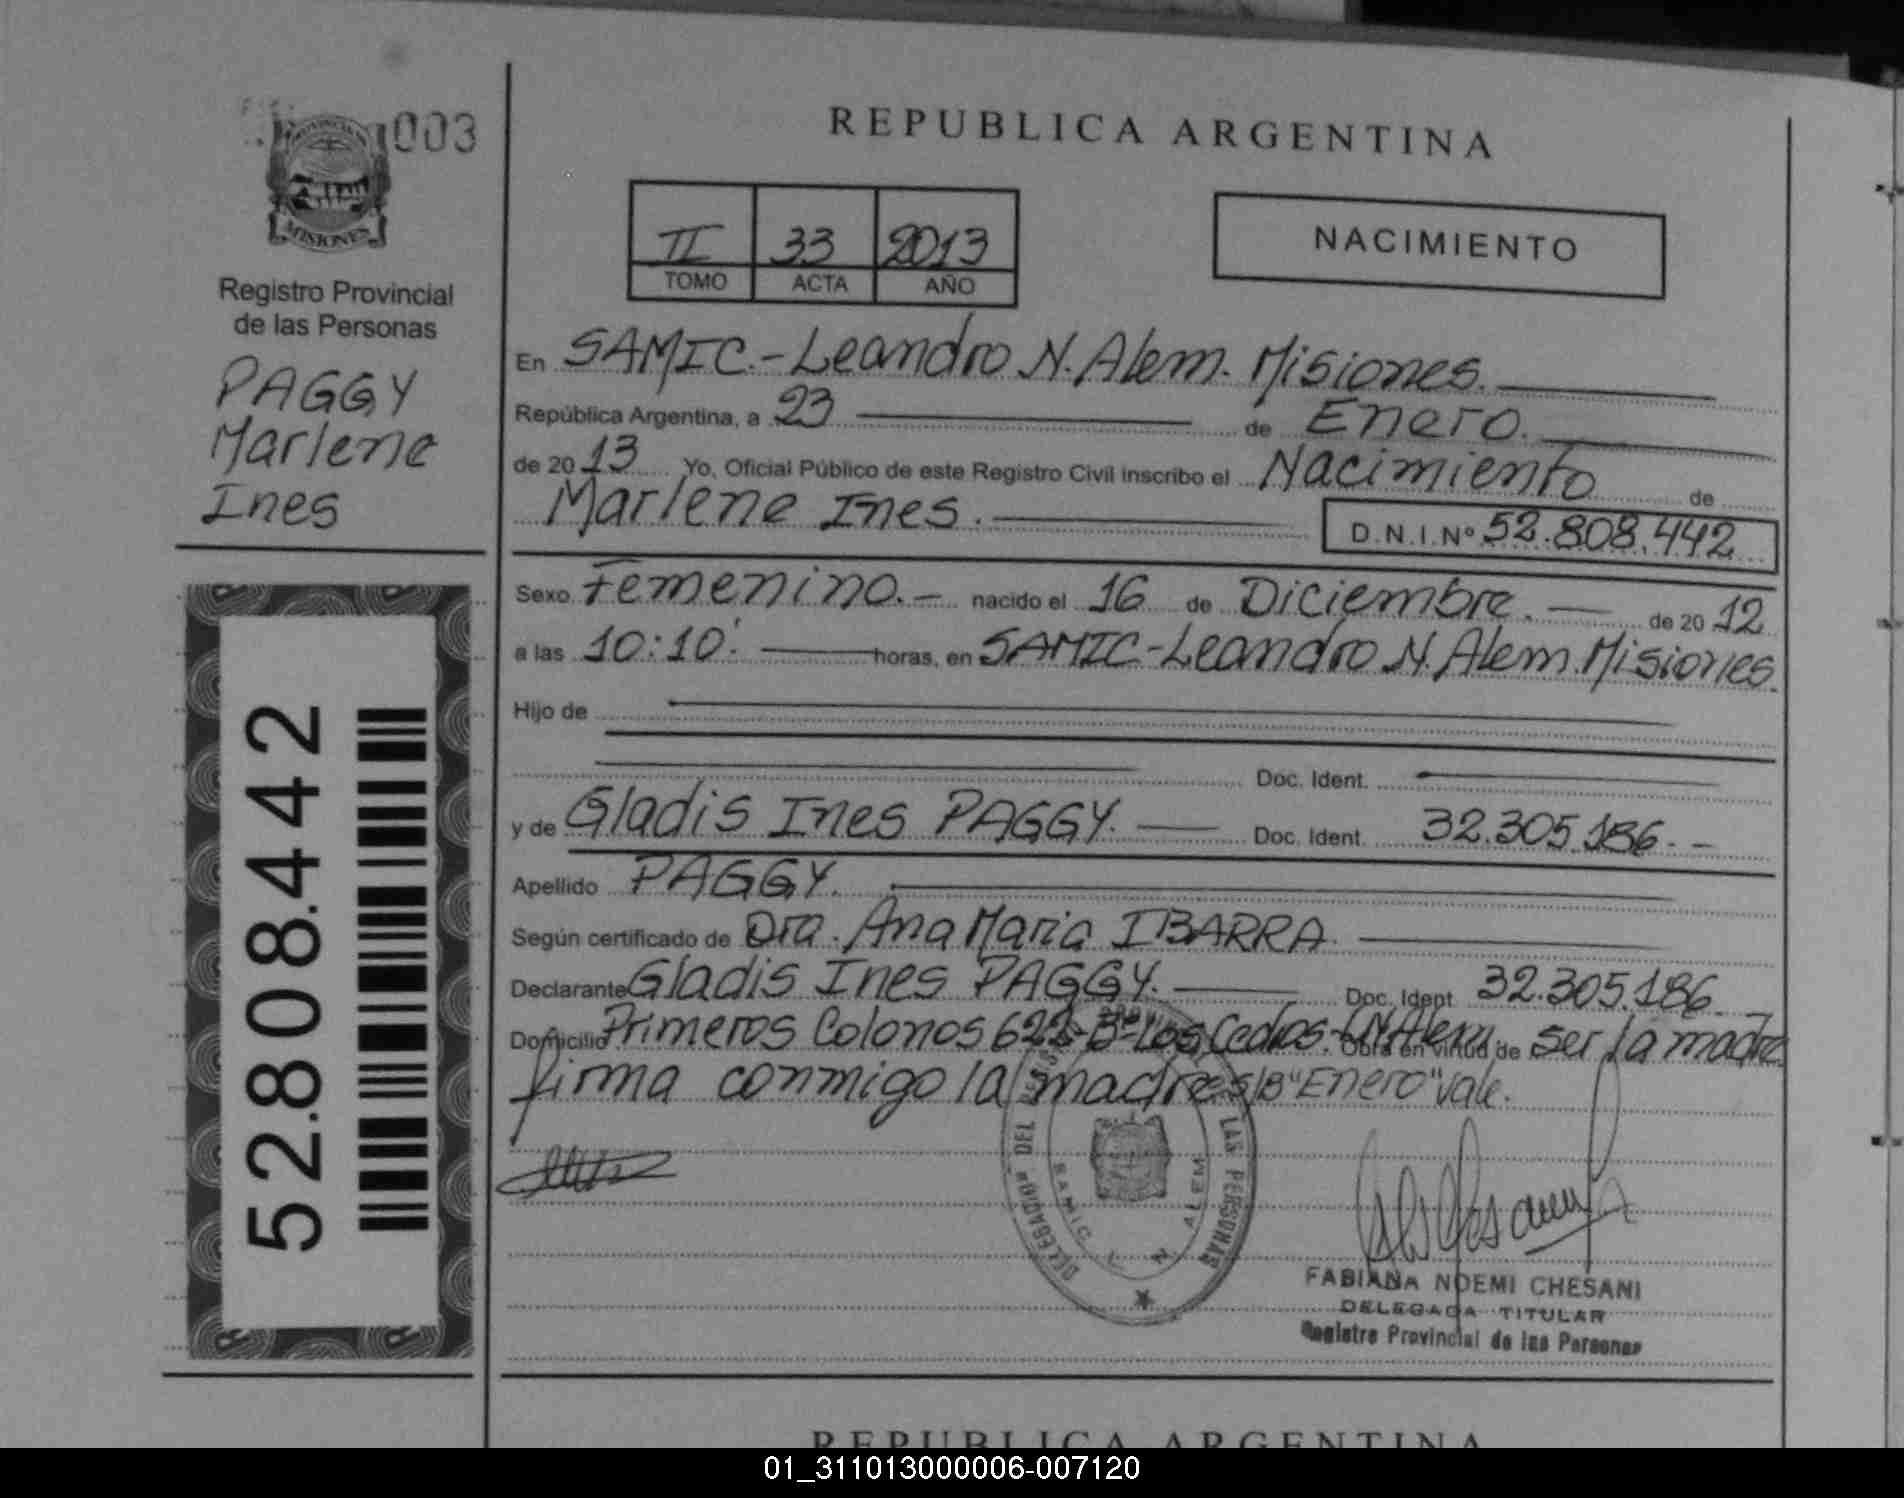 003
PROVINCIA DE
MISIONES
Registro Provincial
de las Personas
PAGGY
Marlene
Ines
52.808.442
REPUBLICA ARGENTINA
II 33 2013
TOMO ACTA AÑO
NACIMIENTO
En SAMIC.-Leandro N. Alem. Misiones.
República Argentina, a 23 de Enero.
de 2013 Yo, Oficial Público de este Registro Civil inscribo el Nacimiento de
Marlene Ines.
D.N.I.Nº 52.808.442
Sexo Femenino.- nacido el 16 de Diciembre. de 2012
a las 10:10' horas, en SAMIC-Leandro N. Alem. Misiones.
Hijo de
Doc. Ident.
y de Gladis Ines PAGGY. Doc. Ident. 32.305.186.-
Apellido PAGGY.
Según certificado de Dra. Ana Maria IBARRA.
Declarante Gladis Ines PAGGY. Doc. Ident. 32.305.186.
Domicilio Primeros Colonos 622-Bº Los Cedros-LNAlem. Obra en virtud de ser la madre
firma conmigo la madre S/B "Enero" vale.
DELEGACION DEL LAS PERSONAS
SAMIC L. N. ALEM
FABIANA NOEMI CHESANI
DELEGADA TITULAR
Registro Provincial de las Personas
REPUBLICA ARGENTINA
01_311013000006-007120